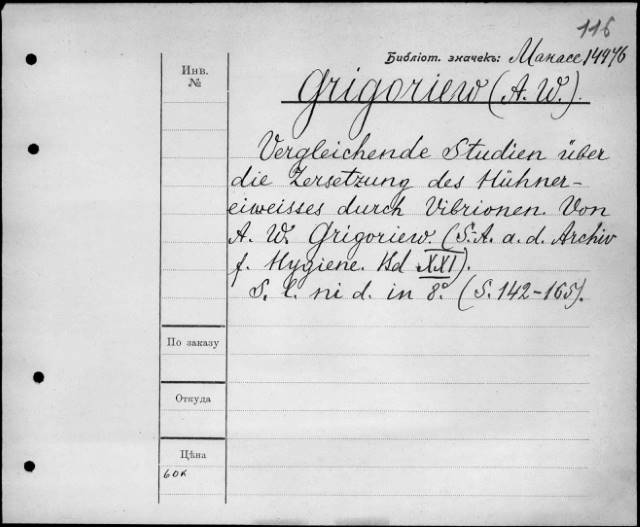 116
Библіот. значекъ: Манасе 14976
Инв.
№
Grigoriew (A. W.).
Vergleichende Studien über
die Zersetzung des Hühner-
eiweisses durch Vibrionen. Von
A. W. Grigoriew. (S.-A. a. d. Archiv
f. Hygiene. Bd XXI).
S. l. ni d. in 8º. (S. 142-165).
По заказу
Откуда
Цѣна
60к